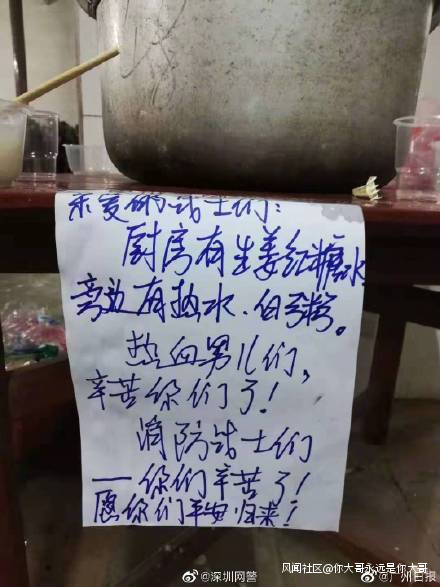 亲爱的战士们:
厨房有生姜红糖水
旁边有热水、白粥。
热血男儿们,
辛苦你们了!
消防战士们
—你们辛苦了!
愿你们平安归来!
风闻社区@你大哥永远是你大哥
@深圳网警
@广州日报